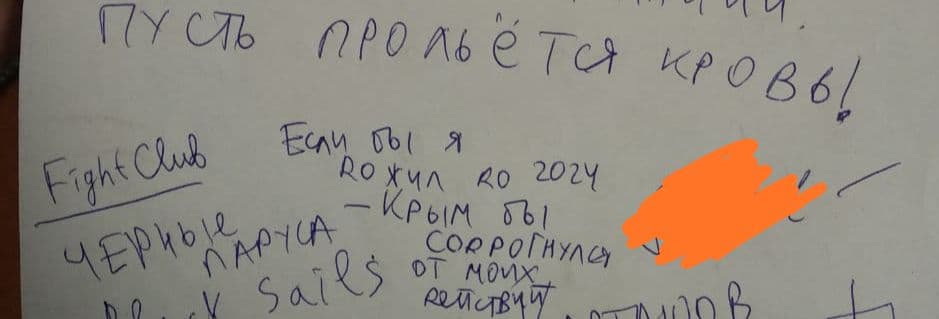 ПУСТЬ ПРОЛЬЁТСЯ КРОВЬ!
Fight Club
Если бы я
дожил до 2024
– Крым бы
содрогнулся
от моих
действий
ЧЕРНЫЕ
ПАРУСА
Sails